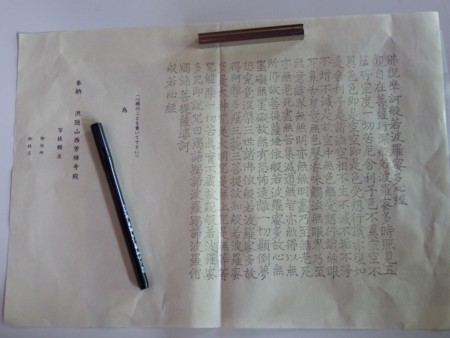 佛説摩訶般若波羅蜜多心経
觀自在菩薩行深般若波羅蜜多時照見五
蘊皆空度一切苦厄舎利子色不異空空不
異色色即是空空即是色受想行識亦復如
是舎利子是諸法空相不生不滅不垢不浄
不増不減是故空中無色無受想行識無眼
耳鼻舌身意無色聲香味觸法無眼界乃至
無意識界無無明亦無無明盡乃至無老死
亦無老死盡無苦集滅道無智亦無得以無
所得故菩提薩埵依般若波羅蜜多故心無
罣礙無罣礙故無有恐怖遠離一切顛倒夢
想究竟涅槃三世諸佛依般若波羅蜜多故
得阿耨多羅三藐三菩提故知般若波羅蜜
多是大神呪是大明呪是無上呪是無等等
呪能除一切苦真實不虚故説般若波羅蜜
多呪即説呪曰羯諦羯諦波羅羯諦波羅僧
羯諦菩提薩婆訶
般若心経
為
奉納 洪隠山西芳禅寺殿